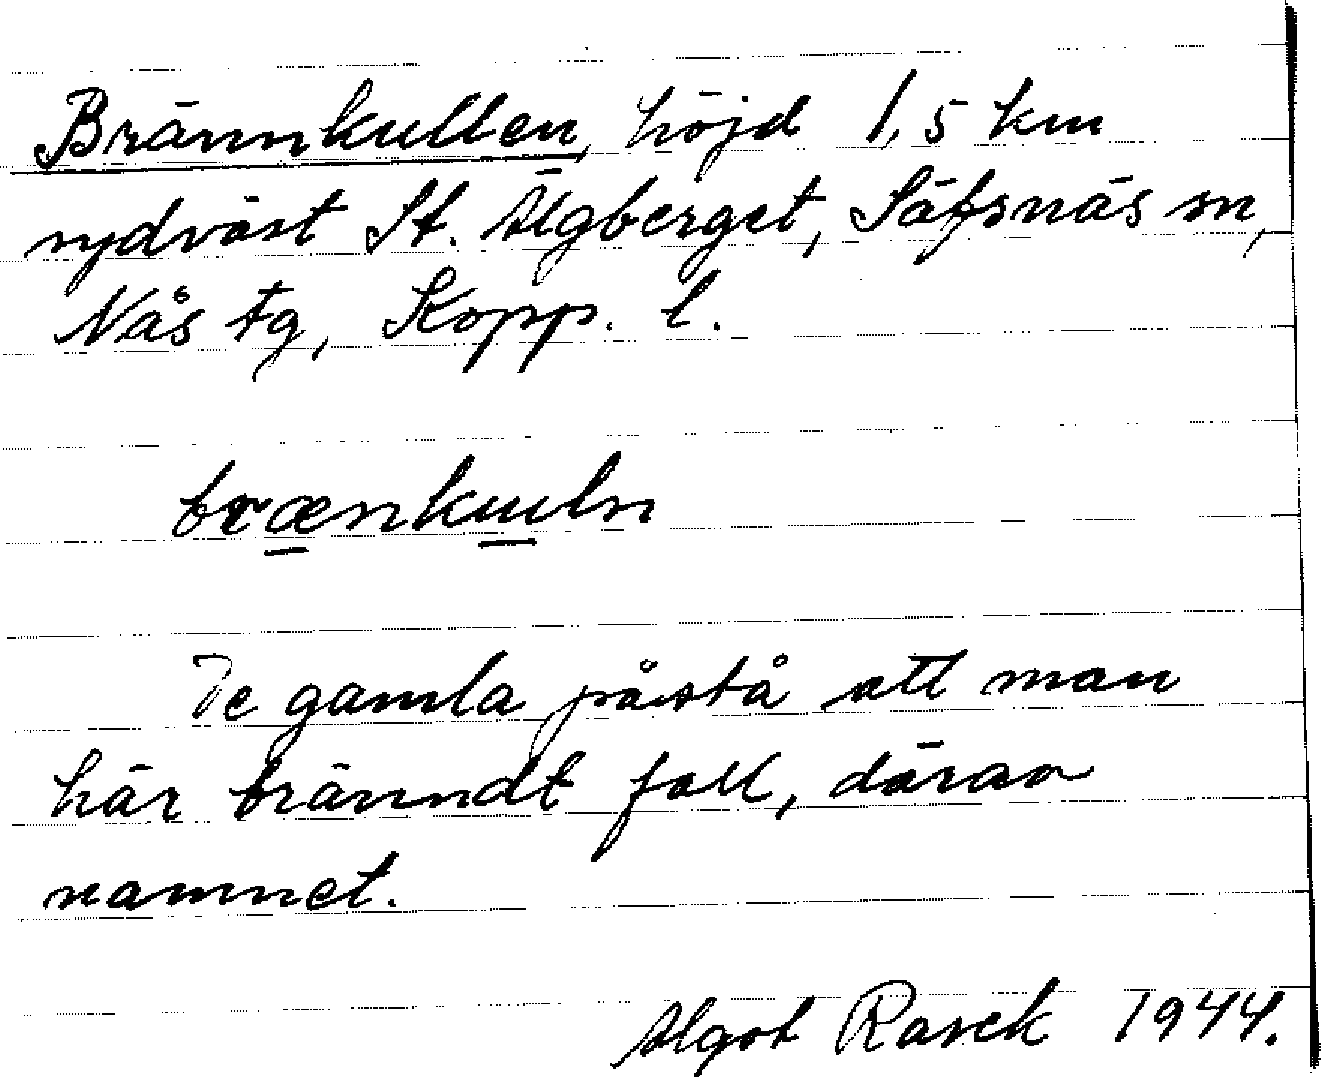 Brännkullen, höjd 1,5 km
sydväst St. Älgberget, Säfsnäs sn,
Nås tg, Kopp. l.
brænkuln
De gamla påstå att man
här bränndt fall, därav
namnet.
Algot Rasck 1944.